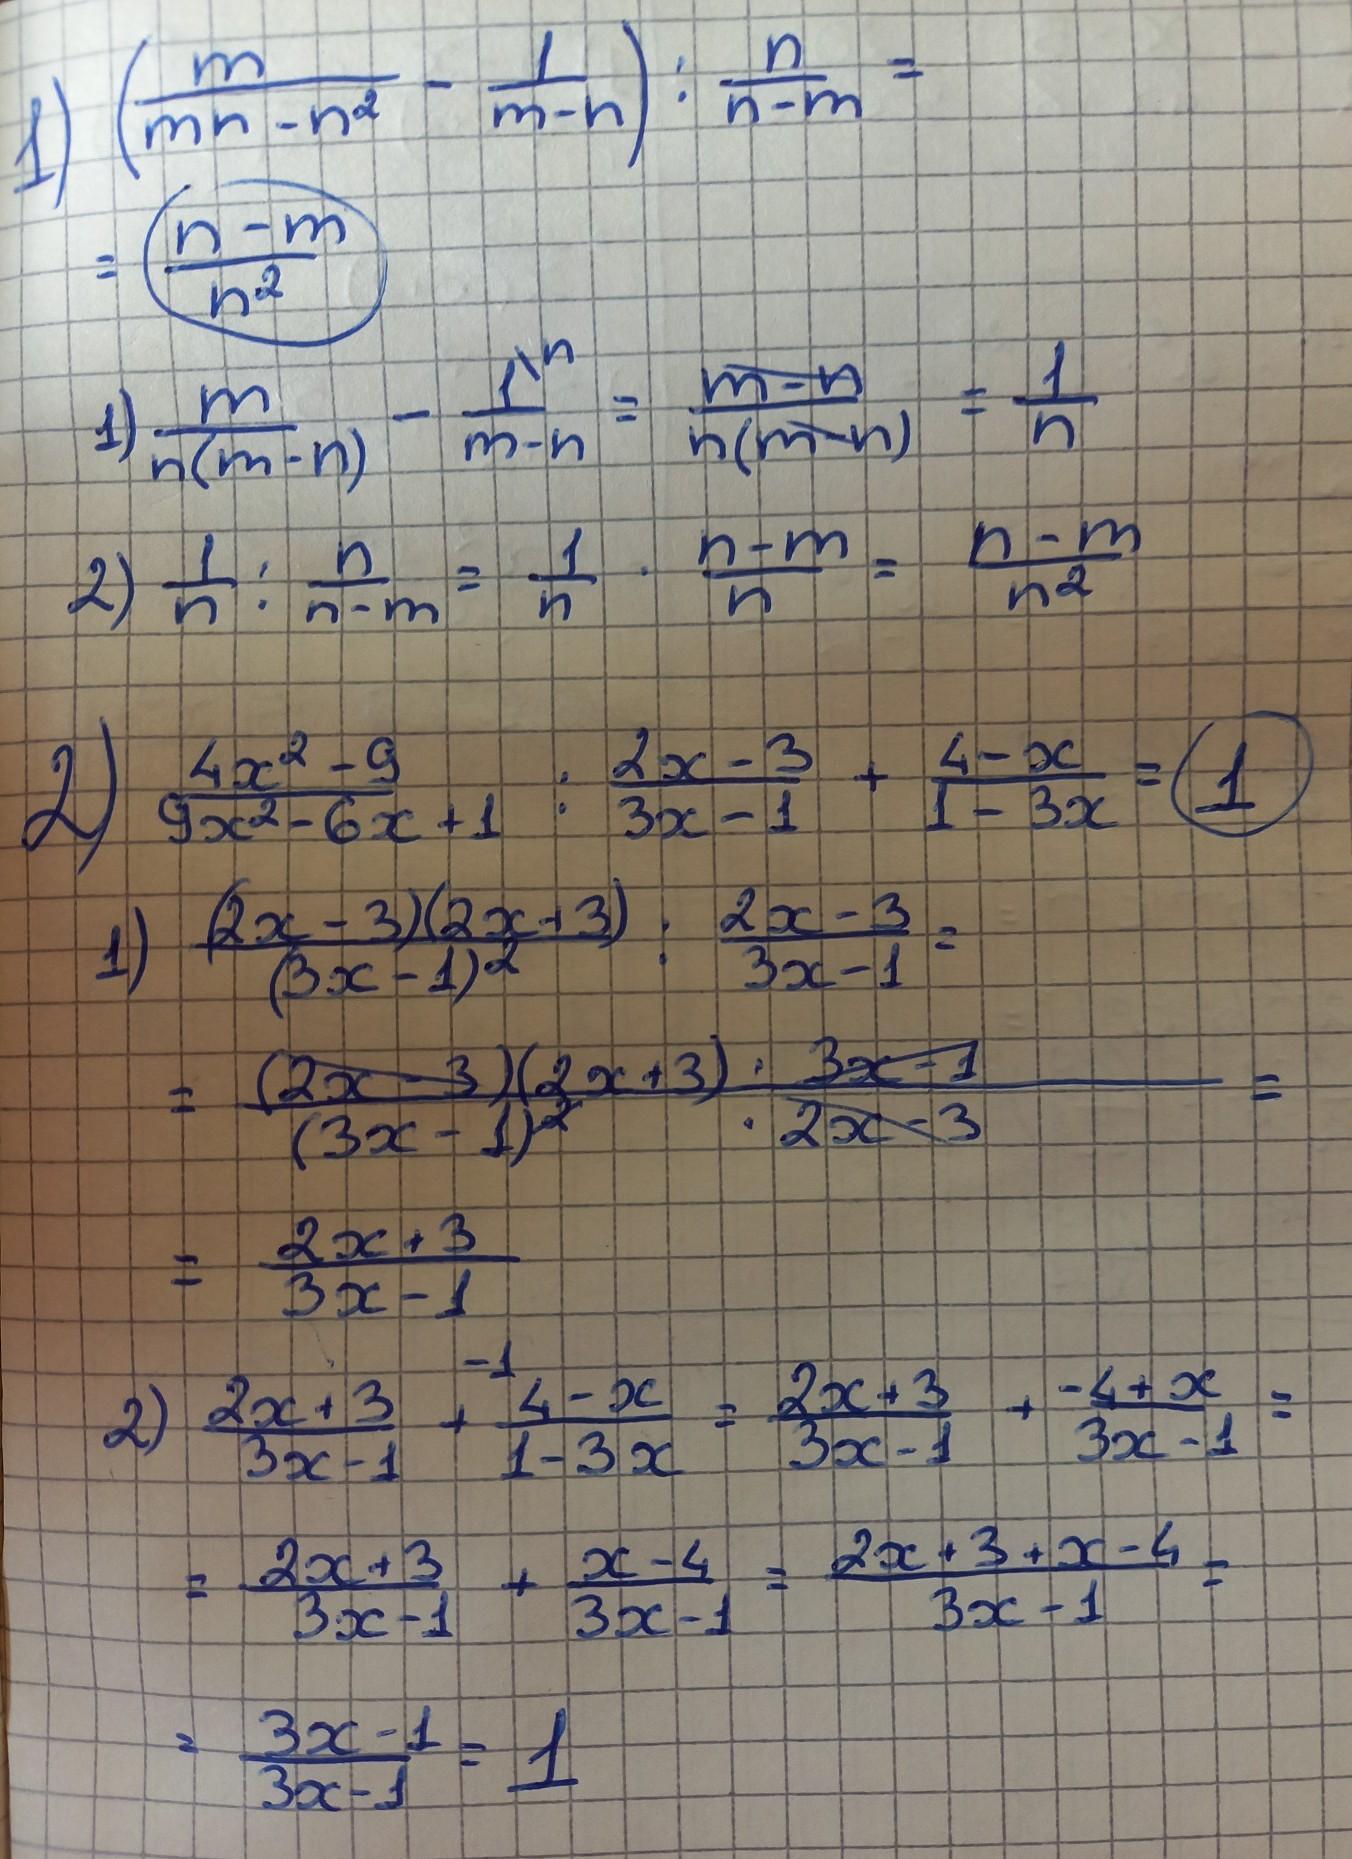 1) (m/(mn-n²) - 1/(m-n)) : n/(n-m) =
= (n-m)/n²
1) m/(n(m-n)) - 1\n/(m-n) = (m-n)/(n(m-n)) = 1/n
2) 1/n : n/(n-m) = 1/n · (n-m)/n = (n-m)/n²
2) (4x²-9)/(9x²-6x+1) : (2x-3)/(3x-1) + (4-x)/(1-3x) = 1
1) (2x-3)(2x+3)/(3x-1)² : (2x-3)/(3x-1) =
= (2x-3)(2x+3) · 3x-1/(3x-1)² · 2x-3 =
= (2x+3)/(3x-1)
2) (2x+3)/(3x-1) + -1 (4-x)/(1-3x) = (2x+3)/(3x-1) + (-4+x)/(3x-1) =
= (2x+3)/(3x-1) + (x-4)/(3x-1) = (2x+3+x-4)/(3x-1) =
= (3x-1)/(3x-1) = 1